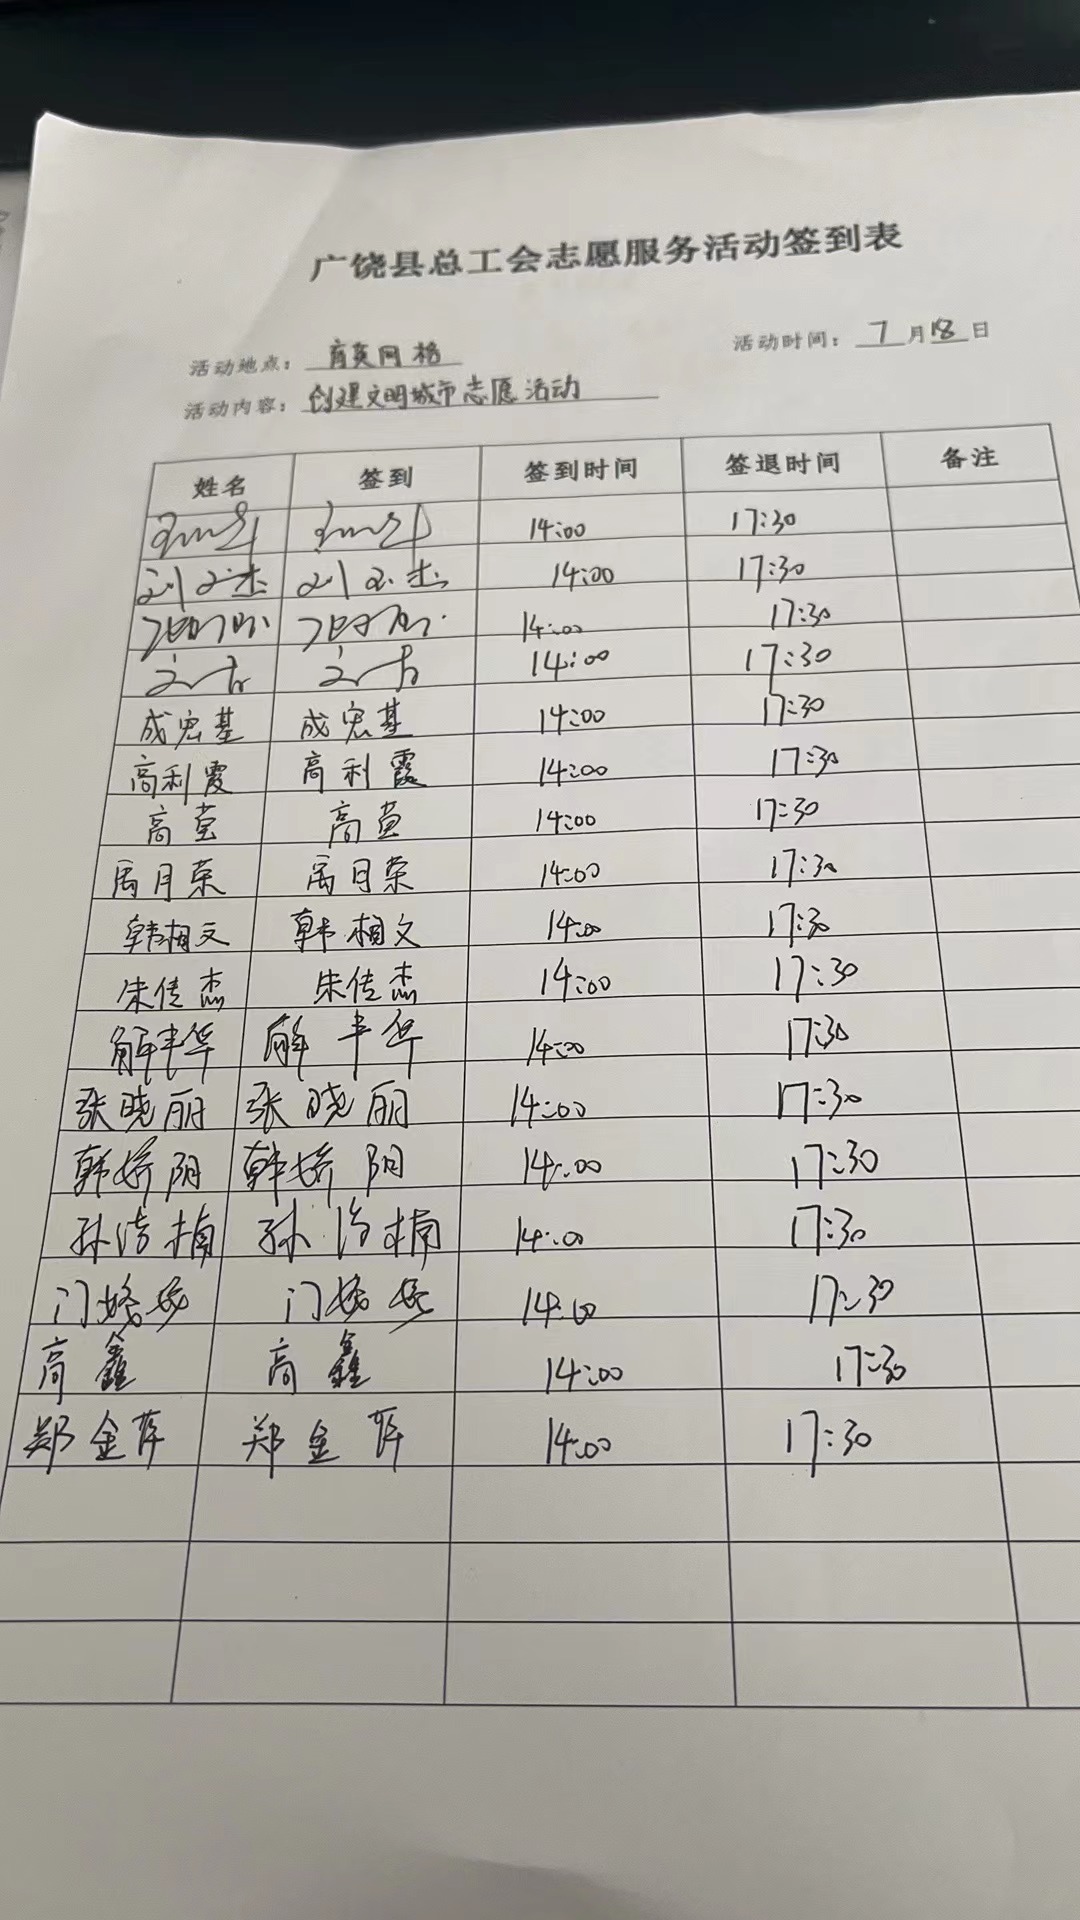 广饶县总工会志愿服务活动签到表
活动地点： 育英网格 活动时间： 7 月 18 日
活动内容： 创建文明城市志愿活动
姓名 签到 签到时间 签退时间 备注
14:00 17:30
刘 杰 刘 杰 14:00 17:30
14:00 17:30
14:00 17:30
成宏基 成宏基 14:00 17:30
高利霞 高利霞 14:00 17:30
高 高 14:00 17:30
禹月荣 禹月荣 14:00 17:30
韩相文 韩相文 14:00 17:30
朱传杰 朱传杰 14:00 17:30
解丰华 解丰华 14:00 17:30
张晓丽 张晓丽 14:00 17:30
韩娇阳 韩娇阳 14:00 17:30
孙浩楠 孙浩楠 14:00 17:30
门 门 14:00 17:30
高鑫 高鑫 14:00 17:30
郑金萍 郑金萍 14:00 17:30